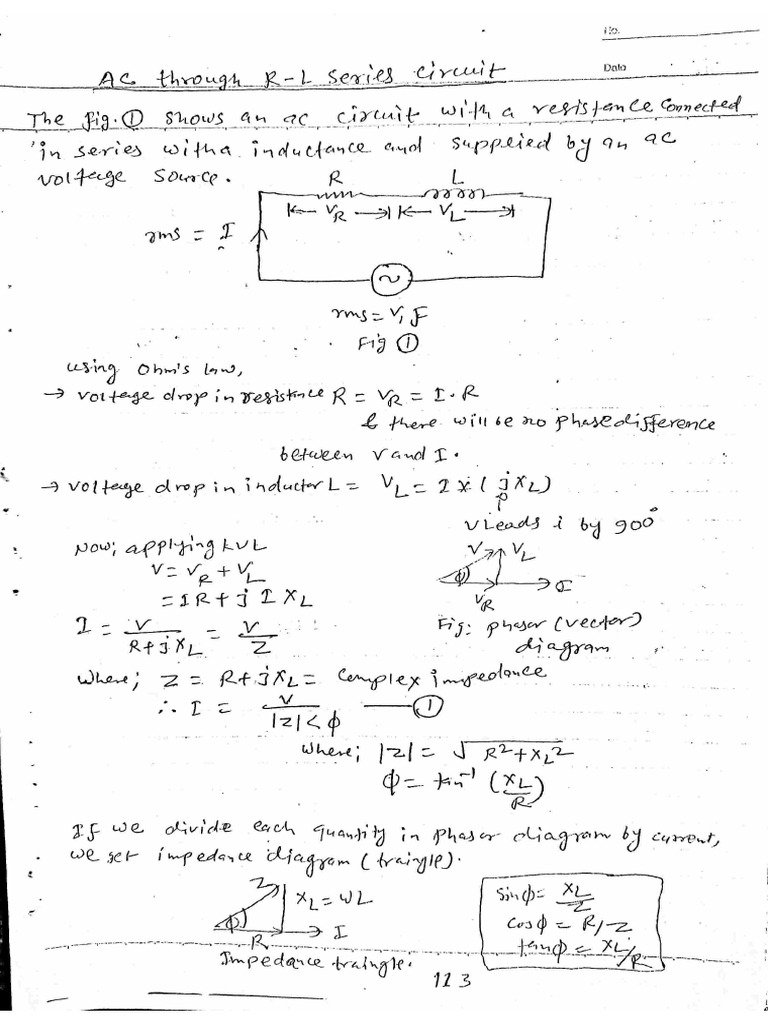 No.
Date
AC through R-L series circuit
The fig. ① shows an ac circuit with a resistance connected
in series with a inductance and suppleied by an ac
voltage source.
R L
V_R V_L
rms = I
~
rms = V, f
Fig ①
using Ohm's law,
→ voltage drop in resistance R = V_R = I . R
& there will be no phase difference
between V and I.
→ voltage drop in inductor L = V_L = I × ( j X_L)
V leads i by 90°
Now; applying KVL
V = V_R + V_L
= IR + j I X_L
V V_L
ϕ I
V_R
I = V / (R + j X_L) = V / Z
Fig: phasor (vector)
diagram
where; Z = R + j X_L = complex impedance
∴ I = V / |Z| < ϕ —— ①
where; |Z| = √(R² + X_L²)
ϕ = tan⁻¹ (X_L / R)
If we divide each quantity in phasor diagram by current,
we get impedance diagram (traingle).
Z X_L = WL
ϕ I
R
Impedance traingle.
sinϕ = X_L / Z
cosϕ = R/Z
tanϕ = X_L/R
123